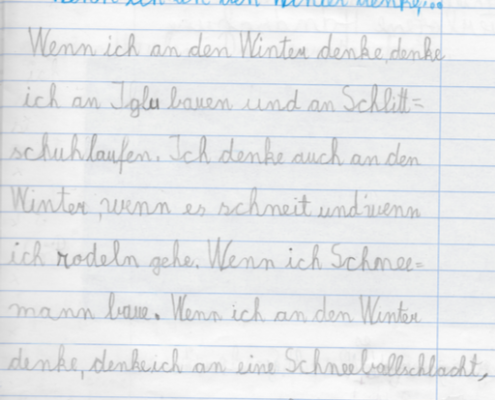 Wenn ich an den Winter denke...
Wenn ich an den Winter denke, denke
ich an Iglu bauen und an Schlitt=
schuhlaufen. Ich denke auch an den
Winter, wenn es schneit und wenn
ich rodeln gehe. Wenn ich Schnee=
mann baue. Wenn ich an den Winter
denke, denke ich an eine Schneeballschlacht,